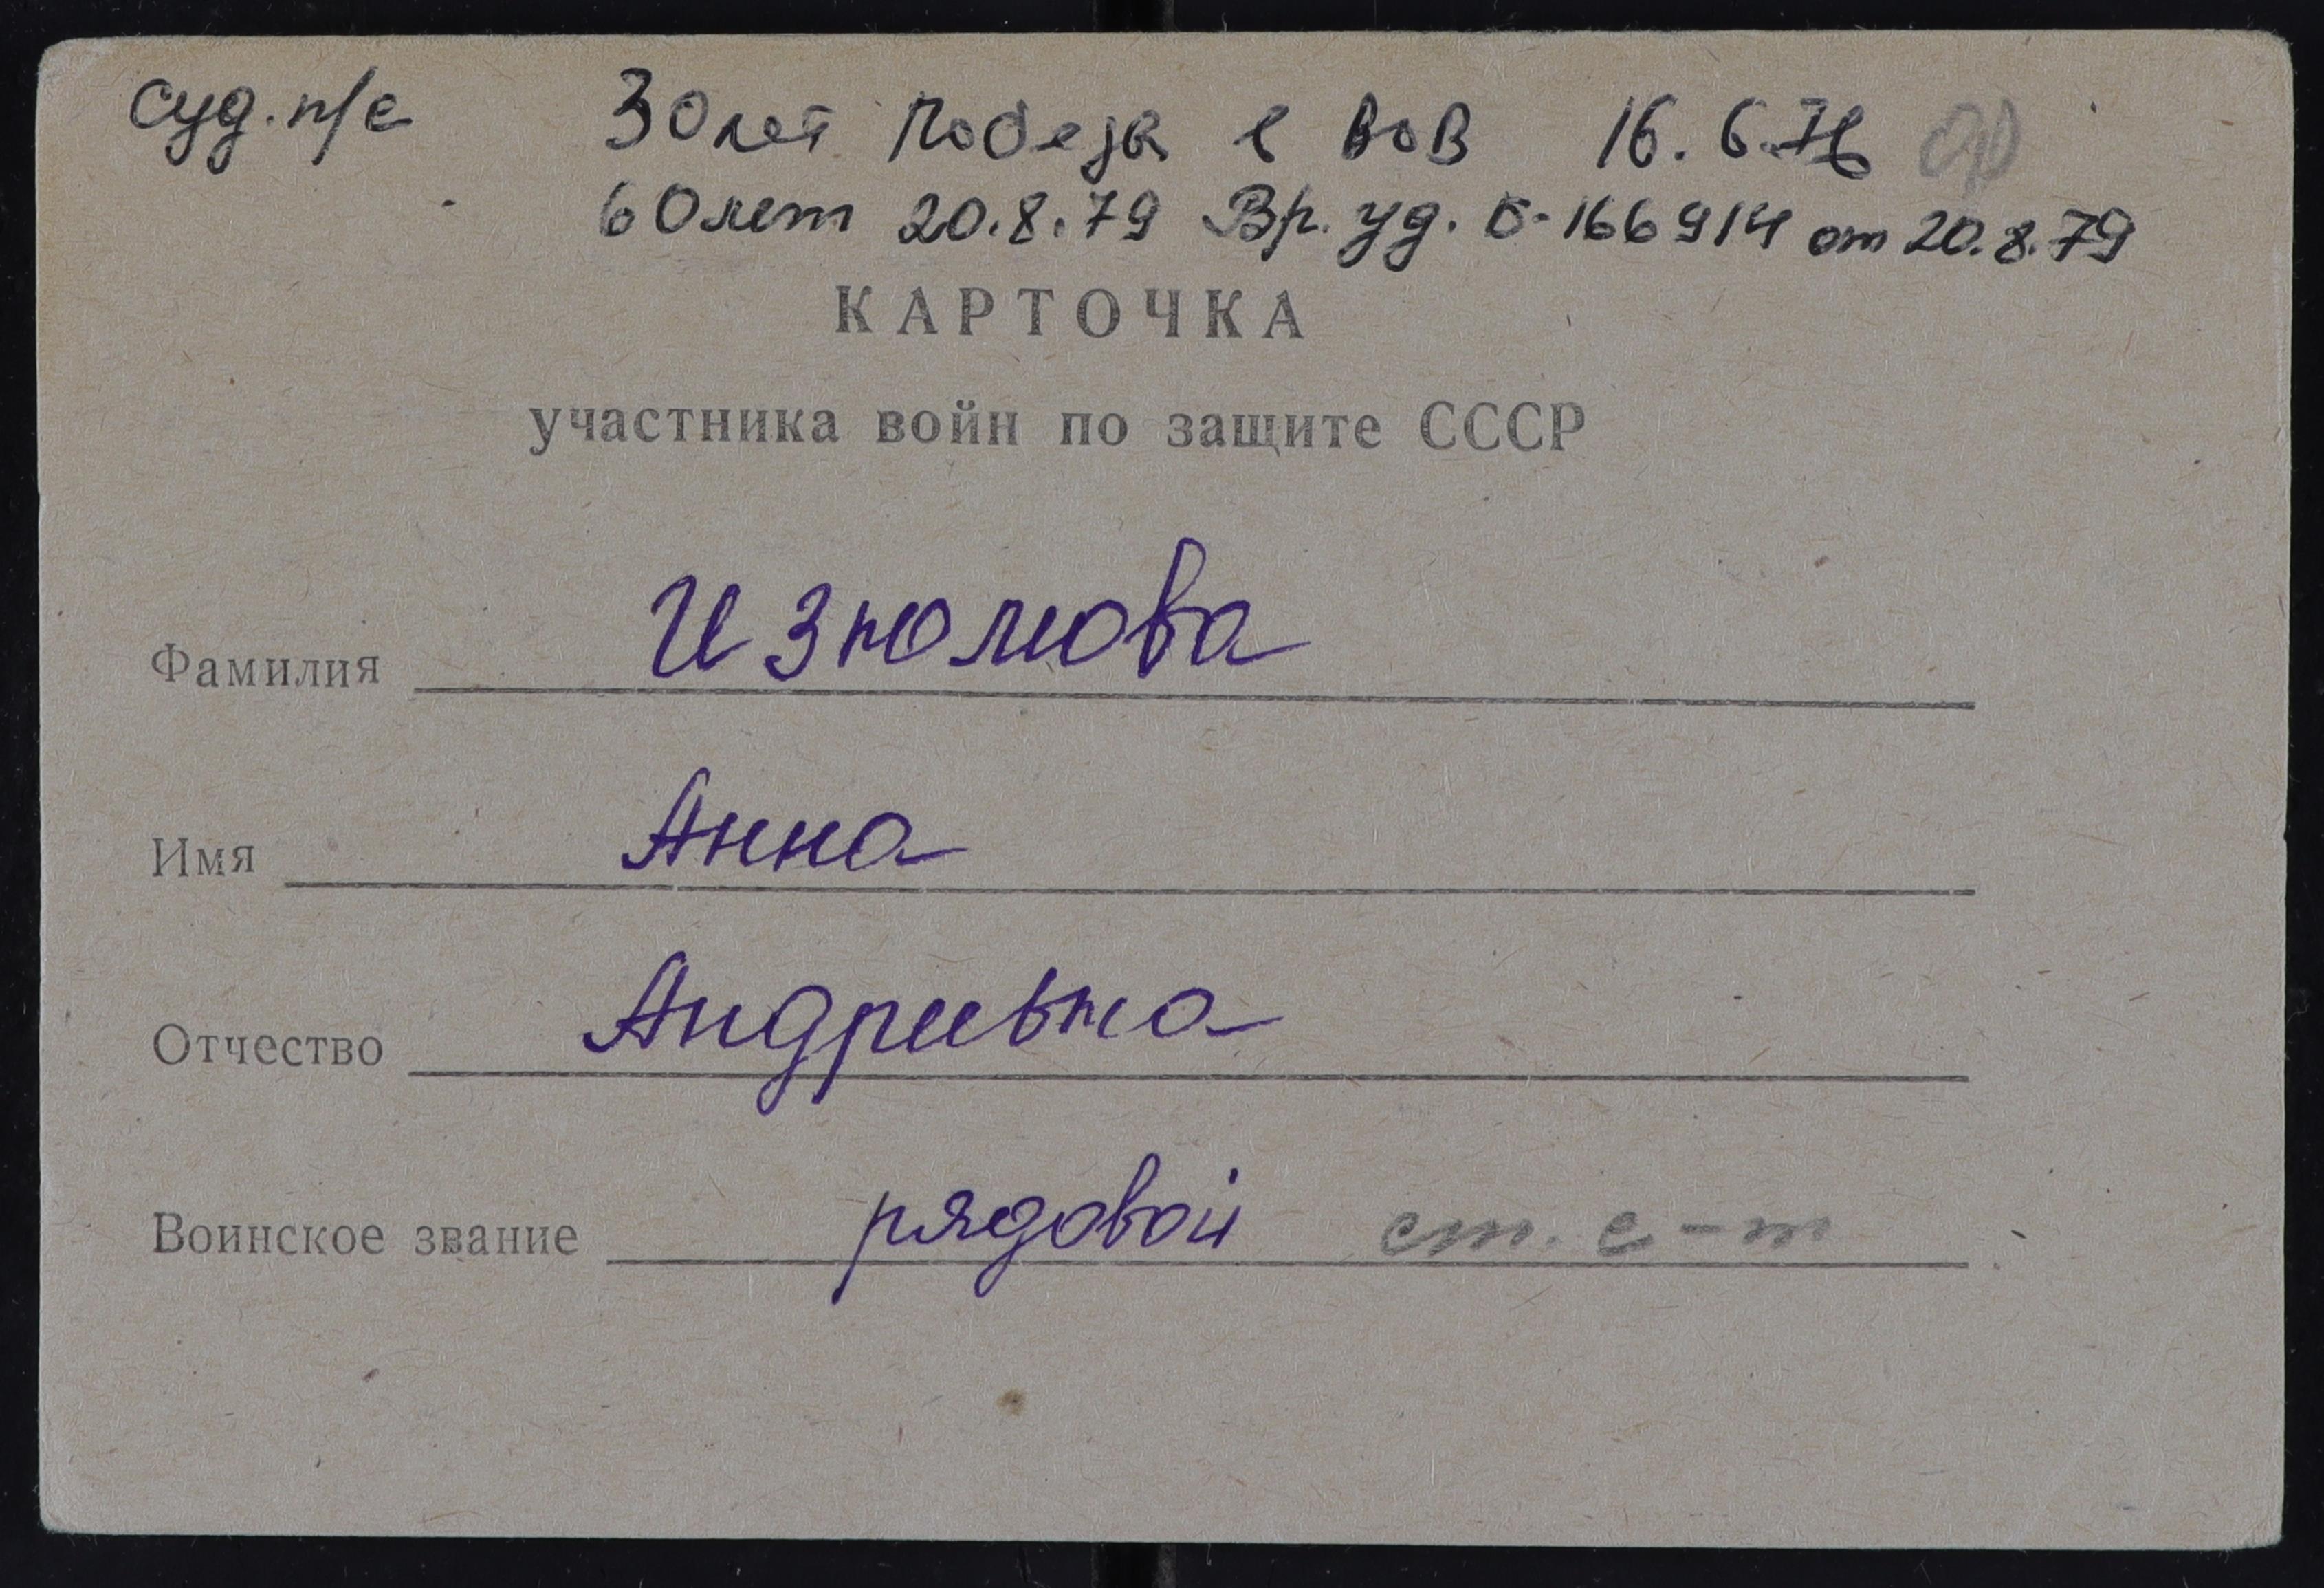 суд. п/с 30 лет Победы в ВОВ 16.6.76
60 лет 20.8.79 Вр. уд. Б-166914 от 20.8.79
КАРТОЧКА
участника войн по защите СССР
Фамилия Изюмова
Имя Анна
Отчество Андреевна
Воинское звание рядовой ст. с-т